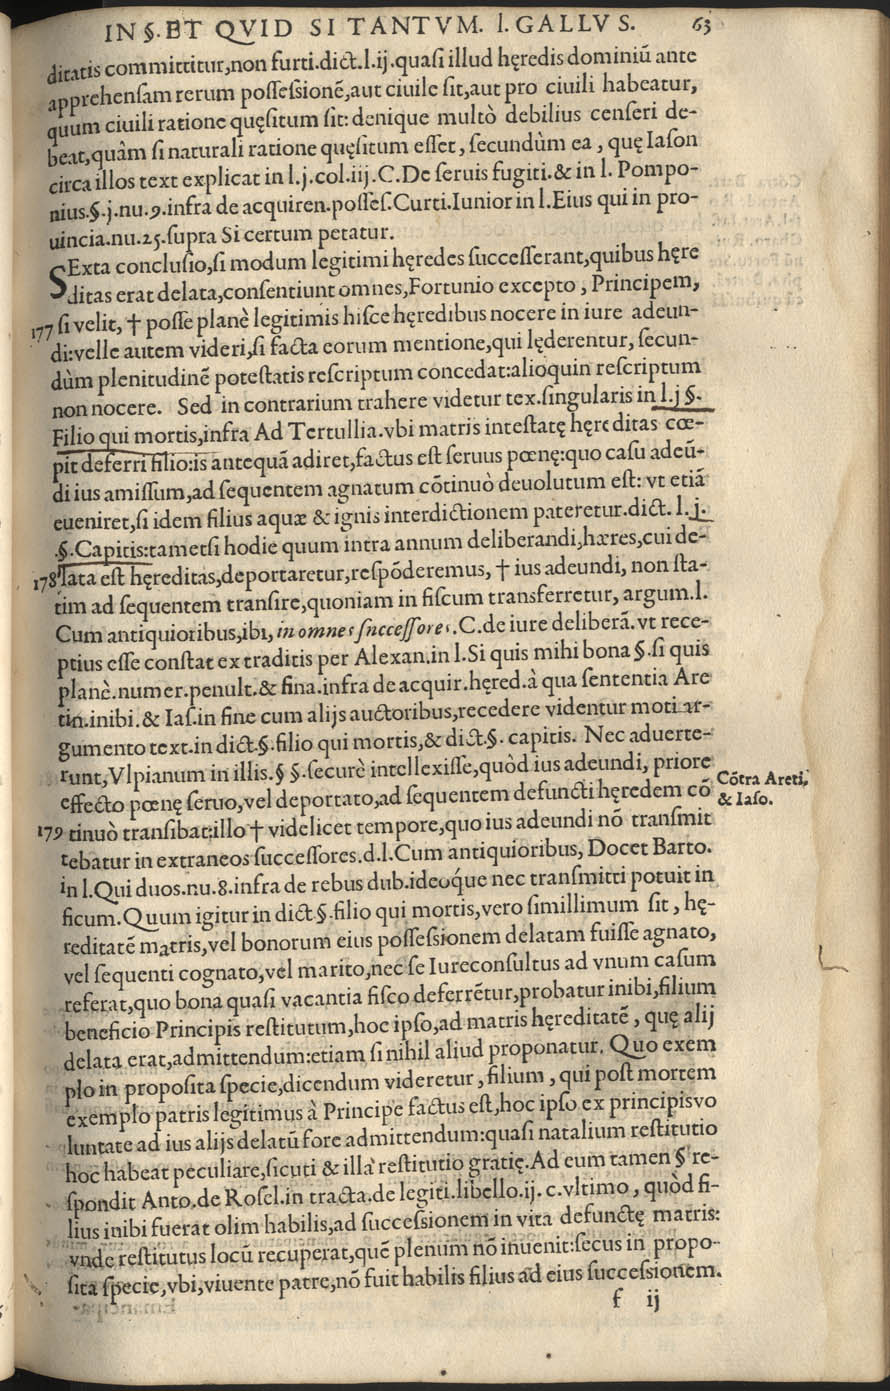 IN §. ET QVID SI TANTVM. l. GALLVS. 63
ditatis committitur,non furti.dict.l.ij.quaſi illud hęredis dominiũ ante
apprehenſam rerum poſſeſsionẽ,aut ciuile ſit,aut pro ciuili habeatur,
quum ciuili ratione quęſitum ſit: denique multò debilius cenſeri de-
beat,quàm ſi naturali ratione quęſitum eſſet, ſecundùm ea, quę Iaſon
circa illos text explicat in l.j.col.iij.C.De ſeruis fugiti.& in l. Pompo-
nius.§.j.nu.9.infra de acquiren.poſſeſ.Curti.Iunior in l.Eius qui in pro-
uincia.nu.25.ſupra Si certum petatur.
SExta concluſio,ſi modum legitimi hęredes ſucceſſerant,quibus hęre
ditas erat delata,conſentiunt omnes,Fortunio excepto, Principem,
177 ſi velit, † poſſe planè legitimis hiſce hęredibus nocere in iure adeun-
di:velle autem videri,ſi facta eorum mentione,qui lęderentur, ſecun-
dùm plenitudinẽ poteſtatis reſcriptum concedat:alioquin reſcriptum
non nocere. Sed in contrarium trahere videtur tex.ſingularis in l.j §.
Filio qui mortis,infra Ad Tertullia.vbi matris inteſtatę hęreditas cœ-
pit deferri filio:is antequã adiret,factus eſt ſeruus pœnę:quo caſu adeũ-
di ius amiſſum,ad ſequentem agnatum cõtinuò deuolutum eſt: vt etiã
eueniret,ſi idem filius aquæ & ignis interdictionem pateretur.dict. l.j.
.§.Capitis:tametſi hodie quum intra annum deliberandi,hæres,cui de-
178 lata eſt hęreditas,deportaretur,reſpõderemus, † ius adeundi, non ſta-
tim ad ſequentem tranſire,quoniam in fiſcum transferretur, argum.l.
Cum antiquioribus,ibi, in omnes ſucceſſores.C.de iure deliberã.vt rece-
ptius eſſe conſtat ex traditis per Alexan.in l.Si quis mihi bona §.ſi quis
planè.numer.penult.& fina.infra de acquir.hęred.à qua ſententia Are
tin.inibi.& Iaſ.in fine cum alijs auctoribus,recedere videntur moti ar-
gumento text.in dict.§.filio qui mortis,& dict.§. capitis. Nec aduerte-
runt,Vlpianum in illis.§ §.ſecurè intellexiſſe,quòd ius adeundi, priore
effecto pœnę ſeruo,vel deportato,ad ſequentem defuncti hęredem cõ
Cõtra Areti,
& Iaſo.
179 tinuò tranſibat:illo † videlicet tempore,quo ius adeundi nõ tranſmit
tebatur in extraneos ſucceſſores.d.l.Cum antiquioribus, Docet Barto.
in l.Qui duos.nu.8.infra de rebus dub.ideoq́ue nec tranſmitti potuit in
ficum.Quum igitur in dict.§.filio qui mortis,vero ſimillimum ſit, hę-
reditatẽ matris,vel bonorum eius poſſeſsionem delatam fuiſſe agnato,
vel ſequenti cognato,vel marito,nec ſe Iureconſultus ad vnum caſum
referat,quo bona quaſi vacantia fiſco deferrẽtur,probatur inibi,filium
beneficio Principis reſtitutum,hoc ipſo,ad matris hęreditatẽ, quę alij
delata erat,admittendum:etiam ſi nihil aliud proponatur. Quo exem
plo in propoſita ſpecie,dicendum videretur, filium, qui poſt mortem
exemplo patris legitimus à Principe factus eſt,hoc ipſo ex principis vo
luntate ad ius alijs delatũ fore admittendum:quaſi natalium reſtitutio
hoc habeat peculiare,ſicuti & illa reſtitutio gratię.Ad eum tamen § re-
ſpondit Anto.de Roſel.in tracta.de legiti.libello.ij. c.vltimo, quòd fi-
lius inibi fuerat olim habilis,ad ſucceſsionem in vita defunctę matris:
vnde reſtitutus locũ recuperat,quẽ plenum nõ inuenit:ſecus in propo-
ſita ſpecie,vbi,viuente patre,nõ fuit habilis filius ad eius ſucceſsionem.
f ij